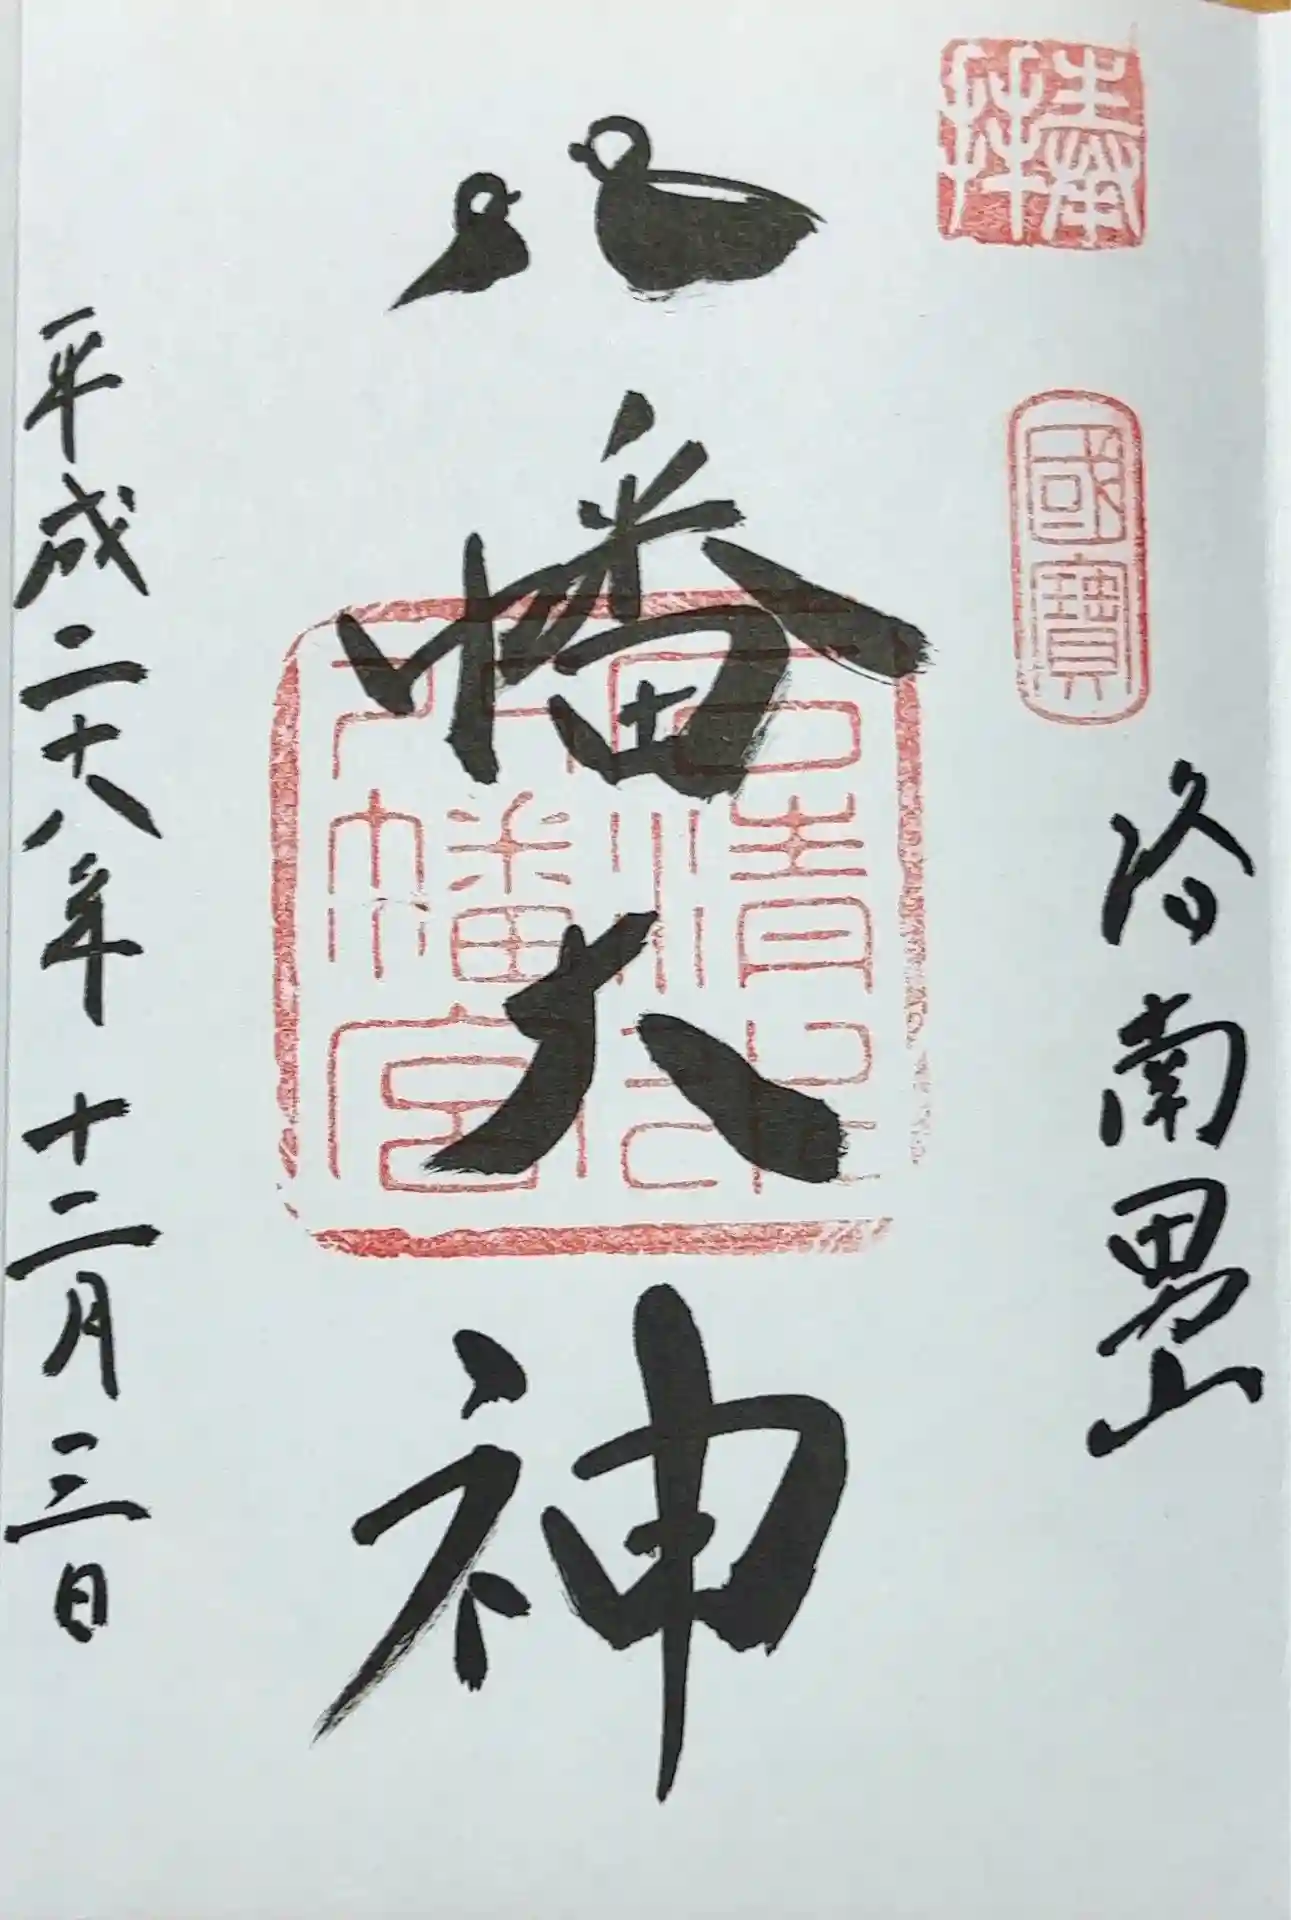 奉拝
國寶
洛南男山
八幡大神
石清水八幡宮
平成二十八年十二月三日